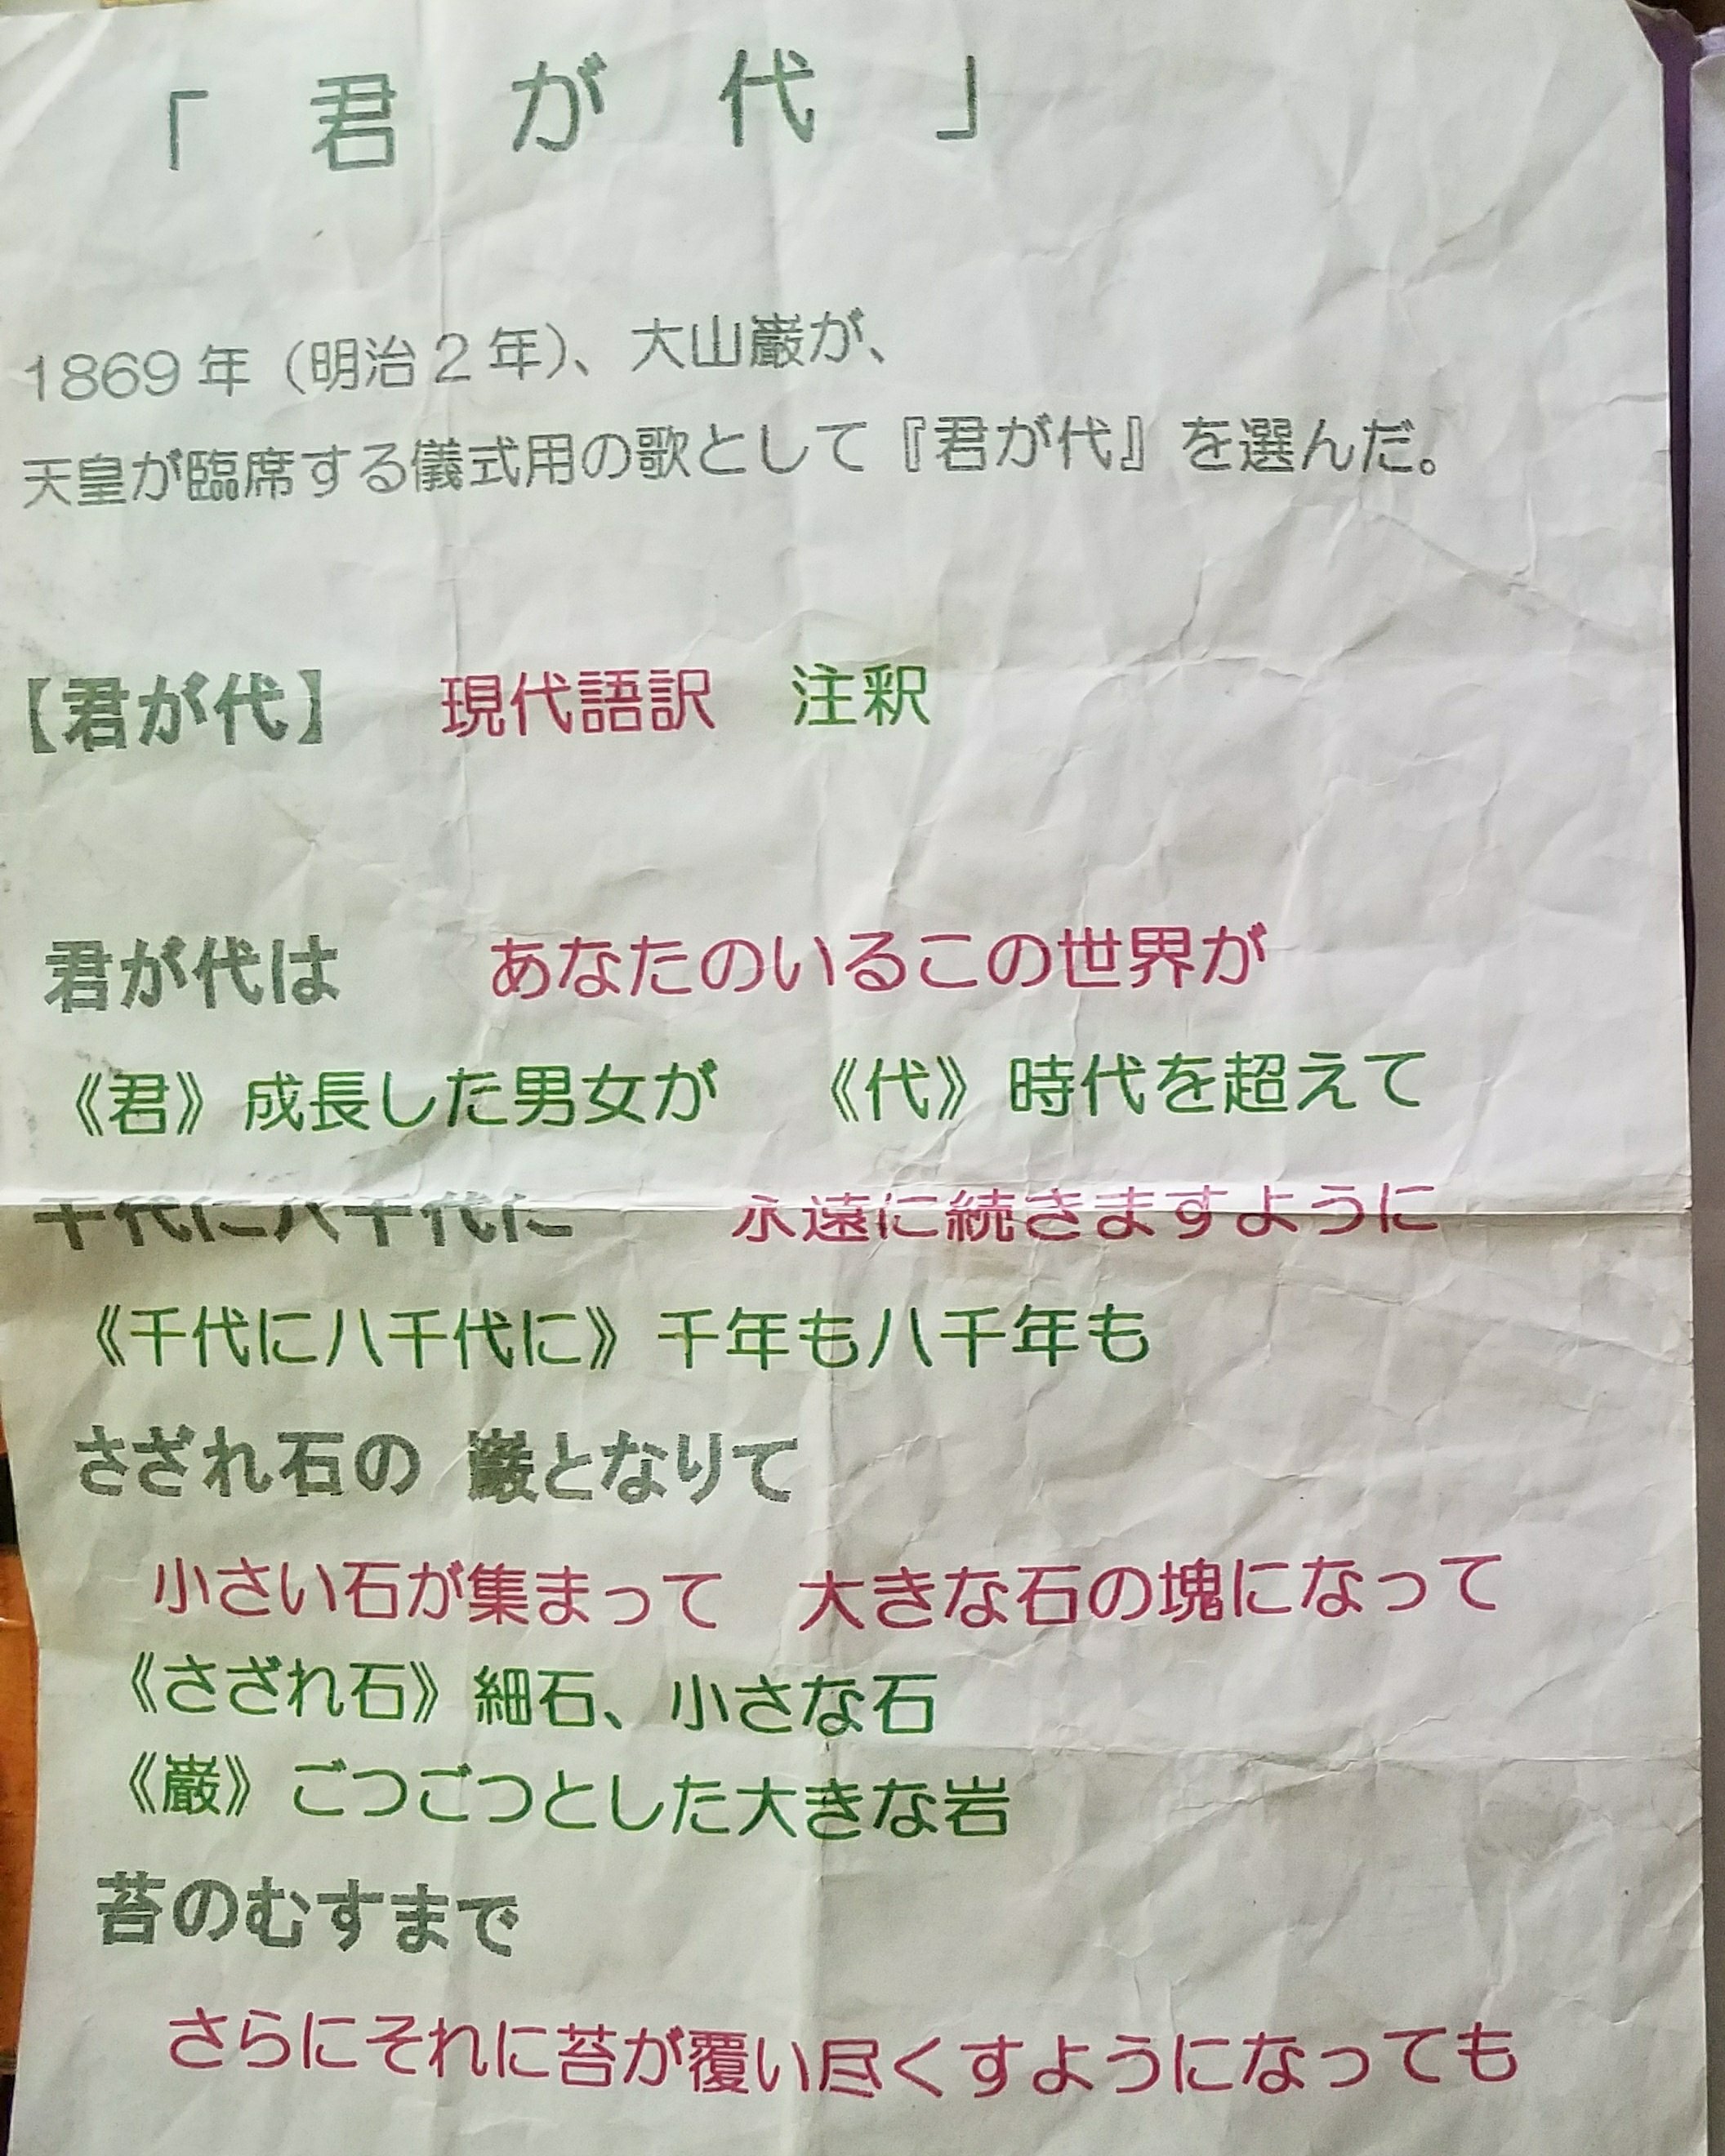 「 君 が 代 」
1869年（明治2年）、大山巌が、
天皇が臨席する儀式用の歌として『君が代』を選んだ。
【君が代】 現代語訳 注釈
君が代は あなたのいるこの世界が
《君》成長した男女が 《代》時代を超えて
千代に八千代に 永遠に続きますように
《千代に八千代に》千年も八千年も
さざれ石の 巌となりて
小さい石が集まって 大きな石の塊になって
《さざれ石》細石、小さな石
《巌》ごつごつとした大きな岩
苔のむすまで
さらにそれに苔が覆い尽くすようになっても